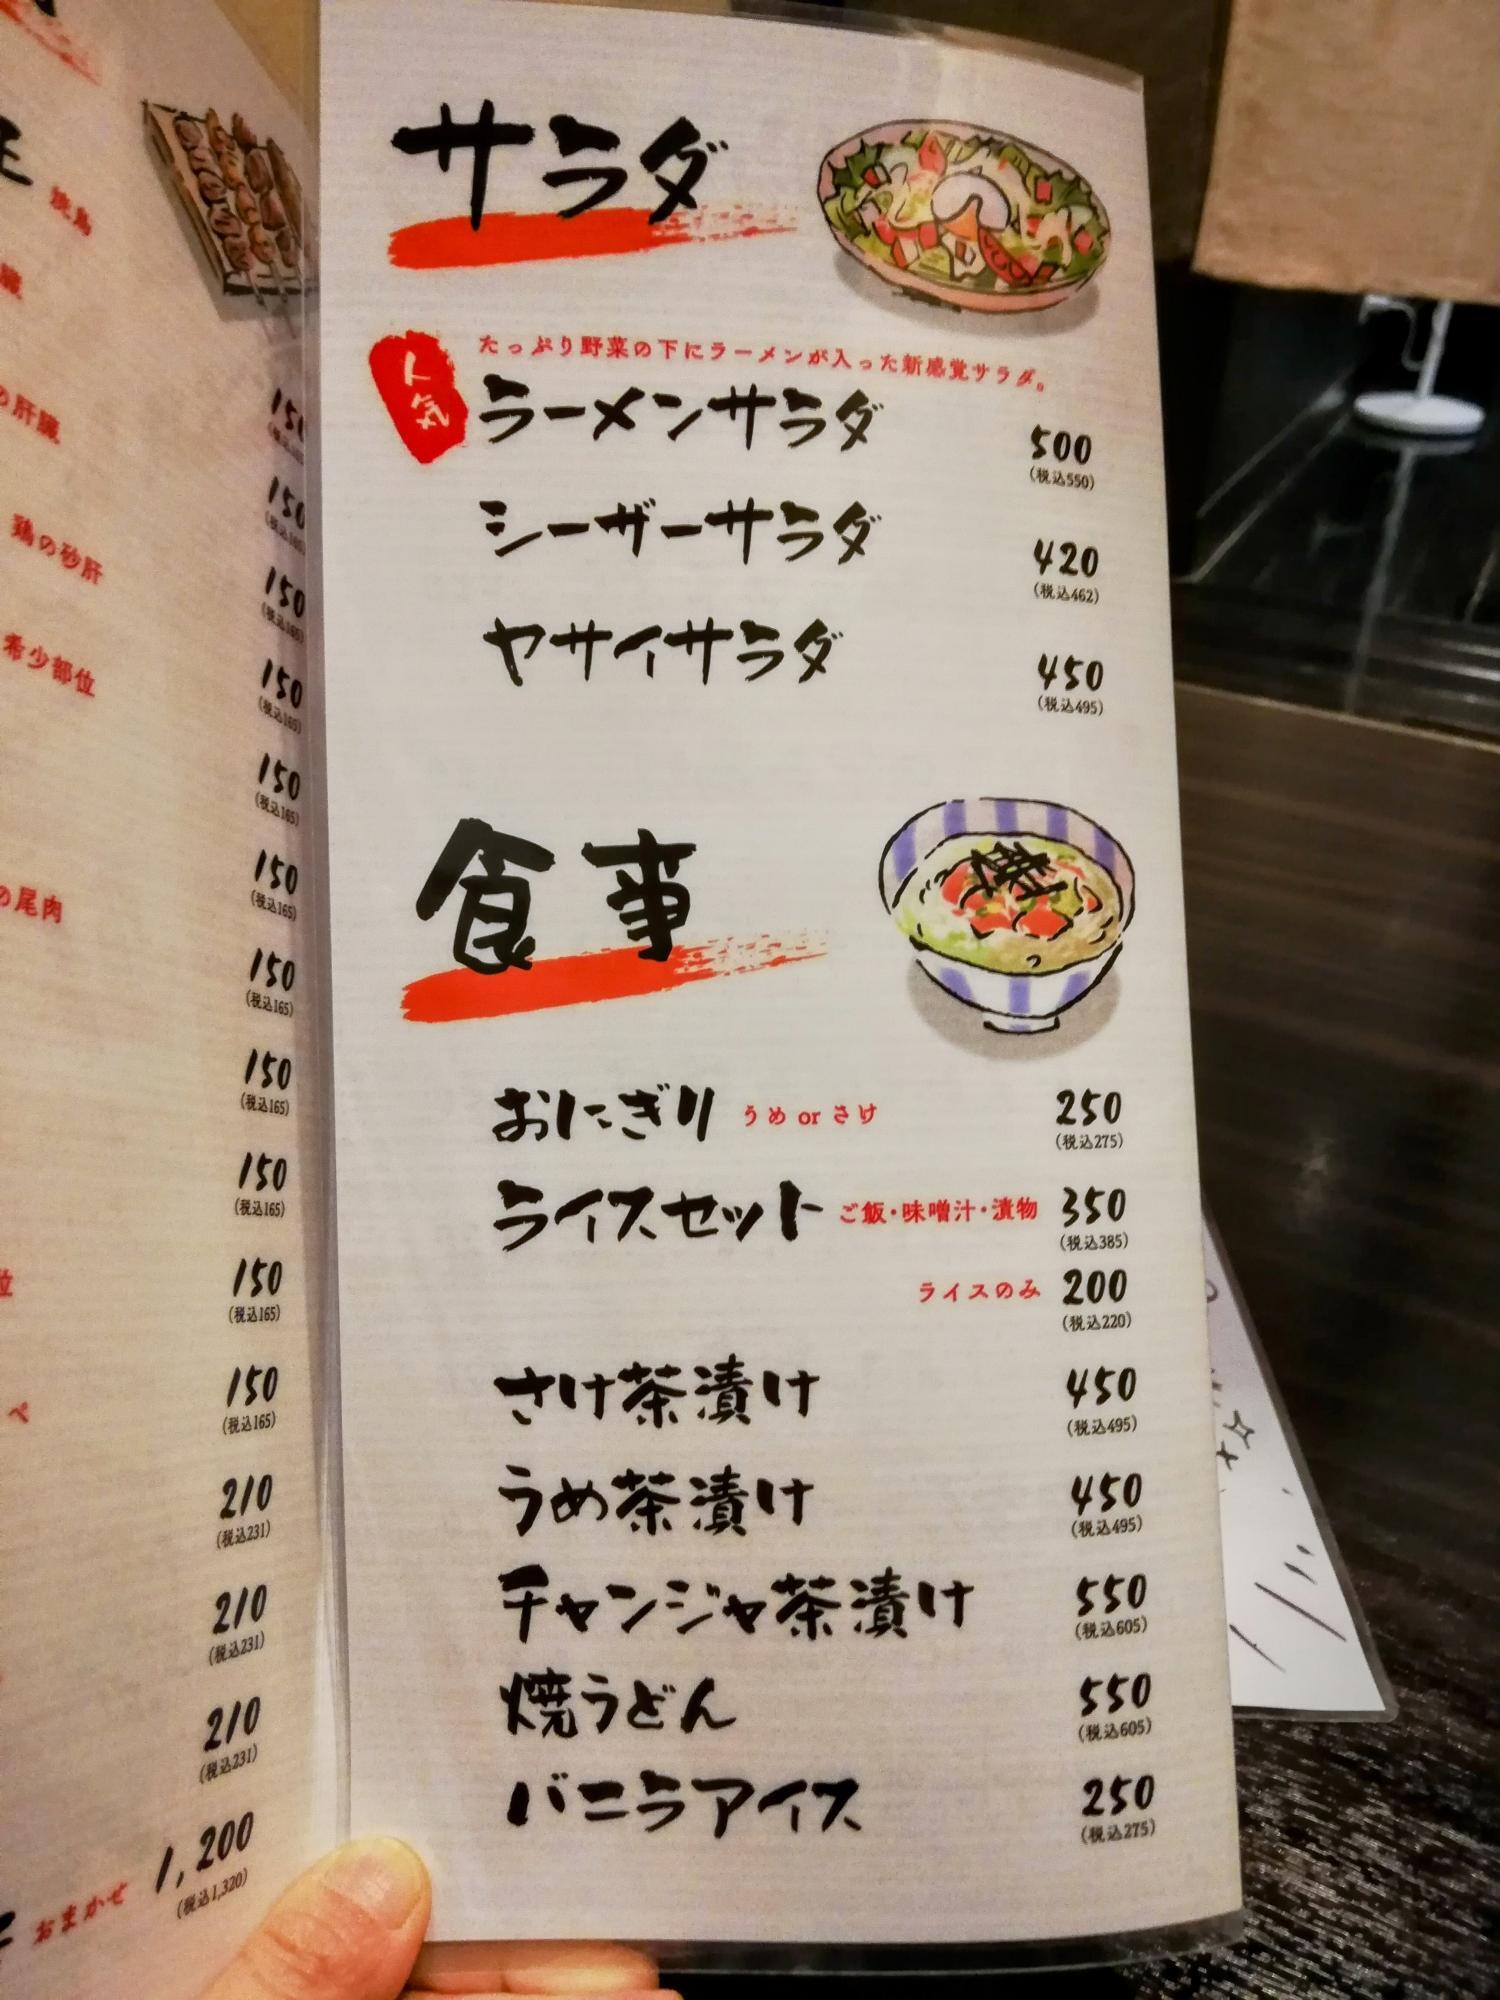 焼鳥
の肝臓
鶏の砂肝
希少部位
の尾肉
150
150
150
150
(税込165)
150
(税込165)
150
(税込165)
150
(税込165)
150
(税込165)
150
(税込165)
150
(税込165)
150
(税込165)
210
(税込231)
210
(税込231)
210
(税込231)
おまかせ 1,200
(税込1,320)
サラダ
人気
たっぷり野菜の下にラーメンが入った新感覚サラダ。
ラーメンサラダ 500
(税込550)
シーザーサラダ 420
(税込462)
ヤサイサラダ 450
(税込495)
食事
おにぎり うめ or さけ 250
(税込275)
ライスセット ご飯・味噌汁・漬物 350
(税込385)
ライスのみ 200
(税込220)
さけ茶漬け 450
(税込495)
うめ茶漬け 450
(税込495)
チャンジャ茶漬け 550
(税込605)
焼うどん 550
(税込605)
バニラアイス 250
(税込275)